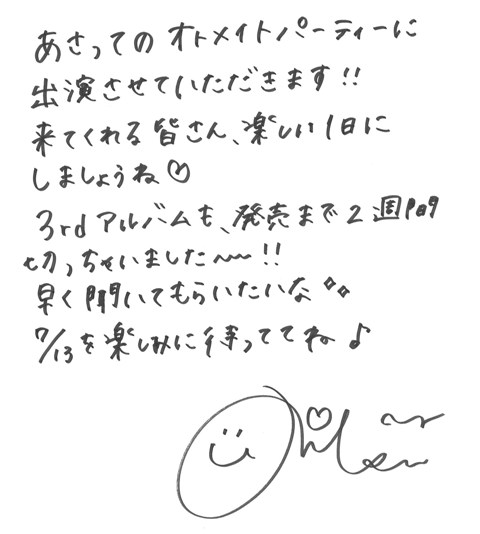 あさってのオトメイトパーティーに
出演させていただきます!!
来てくれる皆さん、楽しい1日に
しましょうね♡
3rdアルバムも、発売まで2週間
切っちゃいました〜!!
早く聞いてもらいたいな
7/13を楽しみに待っててね♪